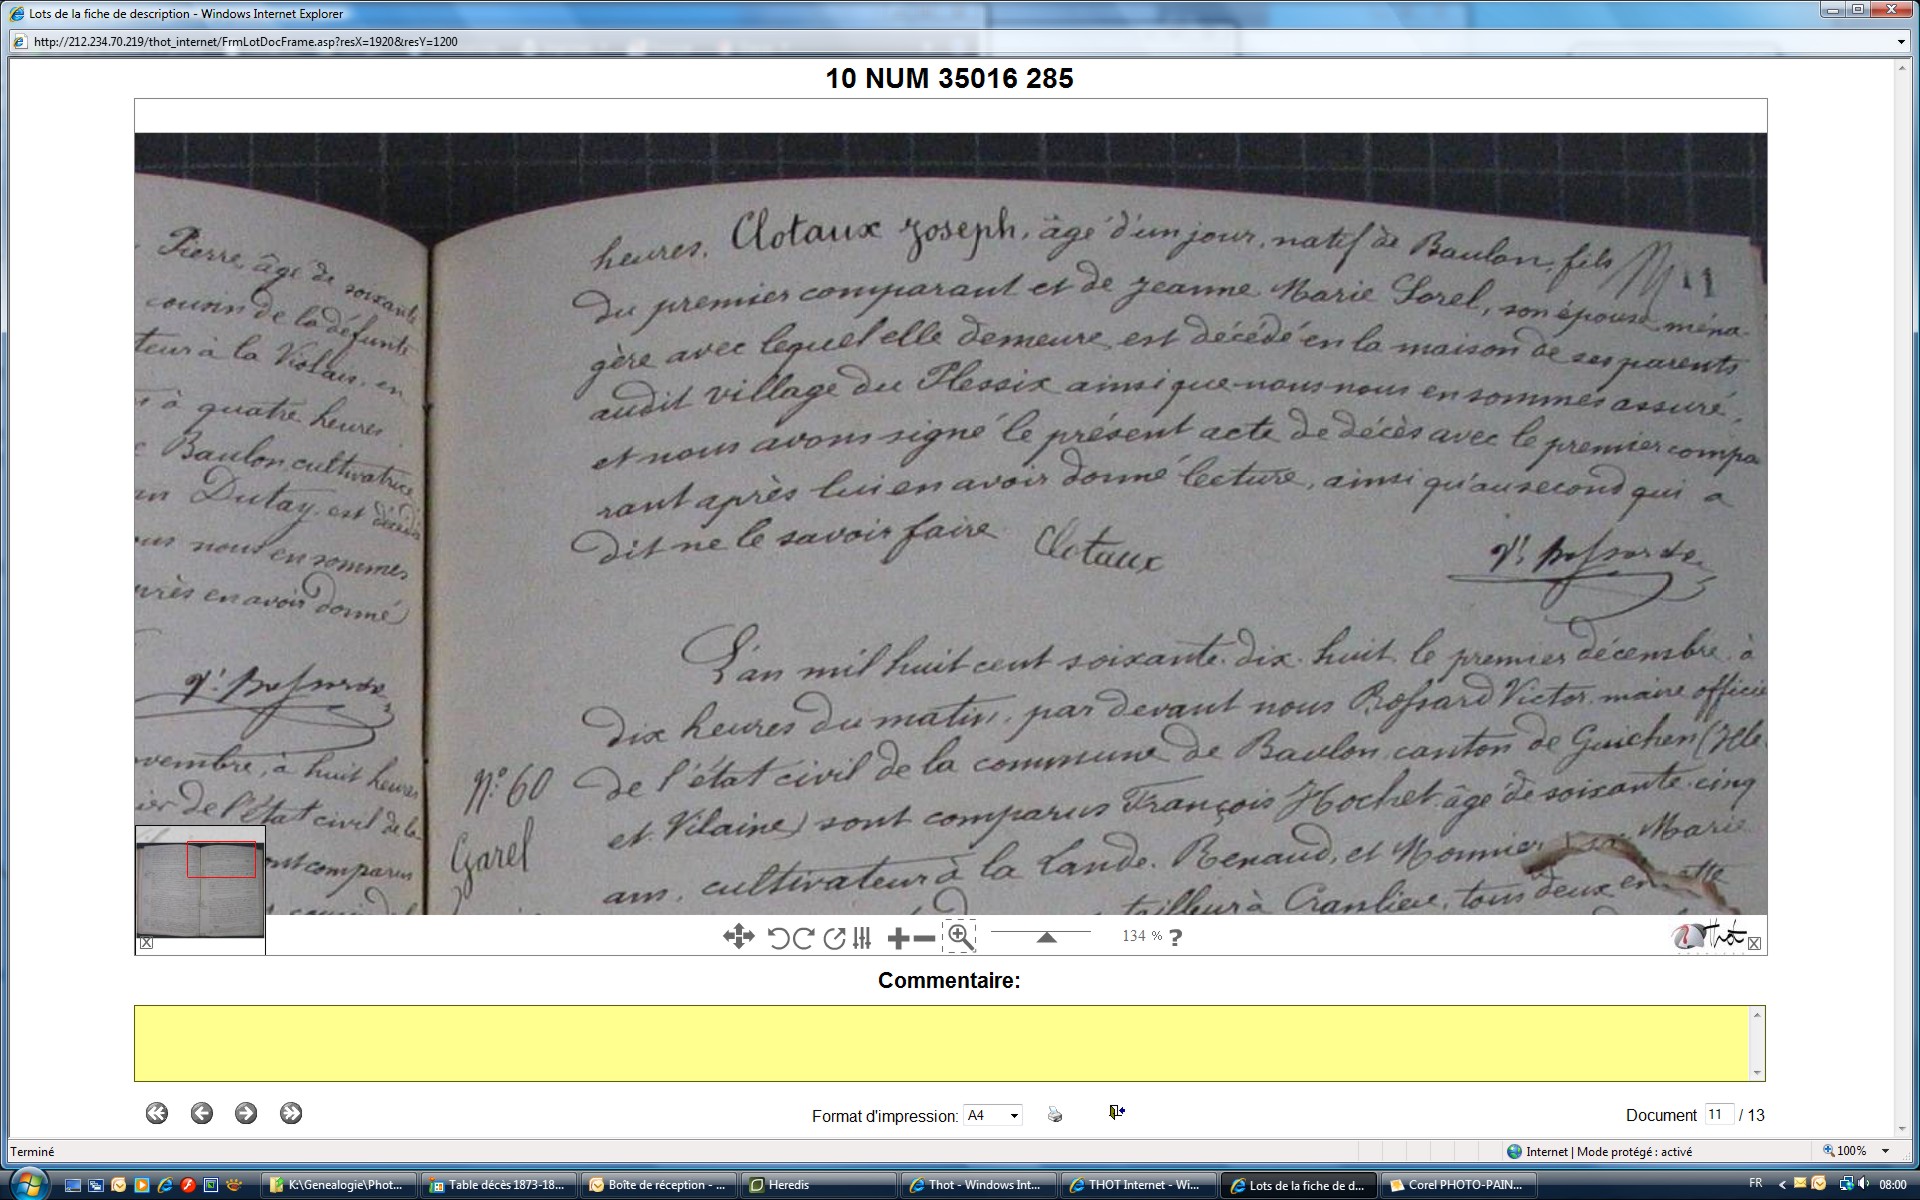 Lots de la fiche de description - Windows Internet Explorer
http://212.234.70.219/thot_internet/FrmLotDocFrame.asp?resX=1920&resY=1200
10 NUM 35016 285
Pierre, âgé de soixante
cousin de la défunte
teur à la Violais, en
à quatre heures
Baulon, cultivatrice
Dutay, est décédée
nous en sommes
après en avoir donné
V. Bossard
vembre, à huit heures
ier de l'état civil de la
ont comparus
heures, Clotaux Joseph, âgé d'un jour, natif de Baulon, fils
du premier comparant et de Jeanne Marie Sorel, son épouse, ména-
gère avec lequel elle demeure, est décédé en la maison de ses parents
audit village du Plessix ainsi que nous nous en sommes assuré,
et nous avons signé le présent acte de décès avec le premier compa
rant après lui en avoir donné lecture, ainsi qu'au second qui a
dit ne le savoir faire
Clotaux
V. Bossard
L'an mil huit cent soixante-dix-huit, le premier décembre, à
dix heures du matin, par devant nous Bossard Victor, maire officier
N° 60
de l'état civil de la commune de Baulon, canton de Guichen (Ille
et Vilaine) sont comparus François Hochet, âgé de soixante-cinq
Garel
ans, cultivateur à la Lande Renaud, et Monnier Marie
tailleur à Cranlieu, tous deux en cette
134 % ?
Thot
Commentaire:
Format d'impression: A4
Document 11 / 13
Terminé
Internet | Mode protégé : activé
100%
K:\Genealogie\Phot...
Table décès 1873-18...
Boîte de réception - ...
Heredis
Thot - Windows Int...
THOT Internet - Wi...
Lots de la fiche de d...
Corel PHOTO-PAIN...
FR
08:00